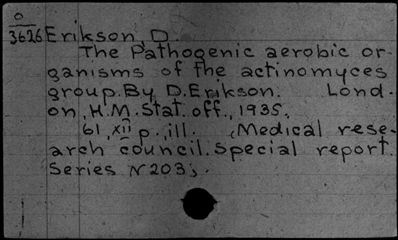 o
3626 Erikson, D.
The Pathogenic aerobic or-
ganisms of the actinomyces
group. By D. Erikson. Lond-
on, H.M. Stat. off., 1935.
61, xii p., ill. (Medical rese-
arch council. Special report.
Series N 203).